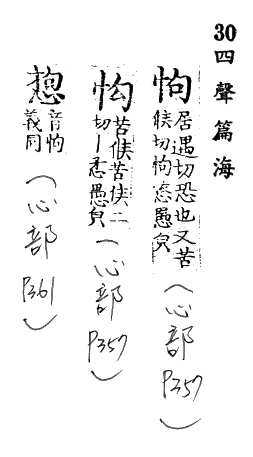 30四聲篇海
怐
居遇切恐也又苦
候切怐愗愚皃
(心部 P357)
苦侯苦候二
切丨愗愚皃
(心部 P357)
音怐
義同
(心部 P361)